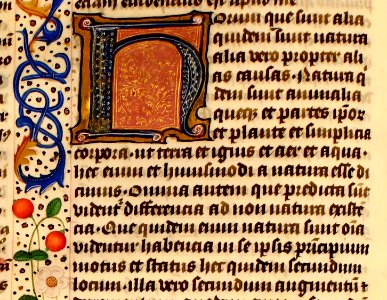 orum que sunt alia
quidem sunt natura
alia vero propter ali
as causas. Natura q
dem sunt animalia
queqz et partes ipor
et plante et simplicia
corpora. ut terra et ignis et aer et aqua.
hec enim et huiusmodi a natura esse di
cimus. Omnia autem que predicta sunt
videntr differencia ad non natura existē
cia. Que quidem enim natura sunt oīa
videntur habencia in se ipsis principium
motus et status hec quidem secundum
locum. illa vero secundum augmentū